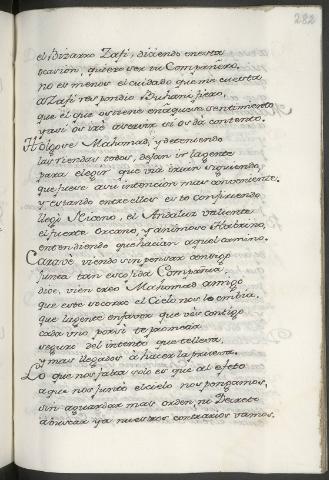 282
el Bizarro Zafi, diciendo en esta
ocasion, quiero ser tu Compañero,
no es menos el cuidado que me cuesta
a Zafi respondio Buhami fiero,
que el que os viene en aqueste sentimiento
y asi os irè a servir si os dà contento.
Holgose Mahomad, y deteniendo
las riendas todos, dejan ir la gente
para elegir que via irian siguiendo,
que fuese a su intencion mas conveniente.
y estando entre ellos esto confiriendo
llegò Siciano, el Andaluz valiente
el fuerte Orcano, y animoso Habrino,
entendiendo que hacian aquel camino.
viendo sin pensar consigo
junta tan escojida Compañia,
dice, bien creo Mahomad amigo
que este socorro el Cielo nos le embia,
que la gente en favor que vès contigo
cada uno por sì te prometia
seguro del intento que te lleva,
y mas llegados à hacer la prueva.
Lo que nos falta solo es que al efeto
a que nos juntò el cielo nos pongamos,
sin aguardar mas orden, ni Decreto
à buscar ya nuestros contrarios vamos.